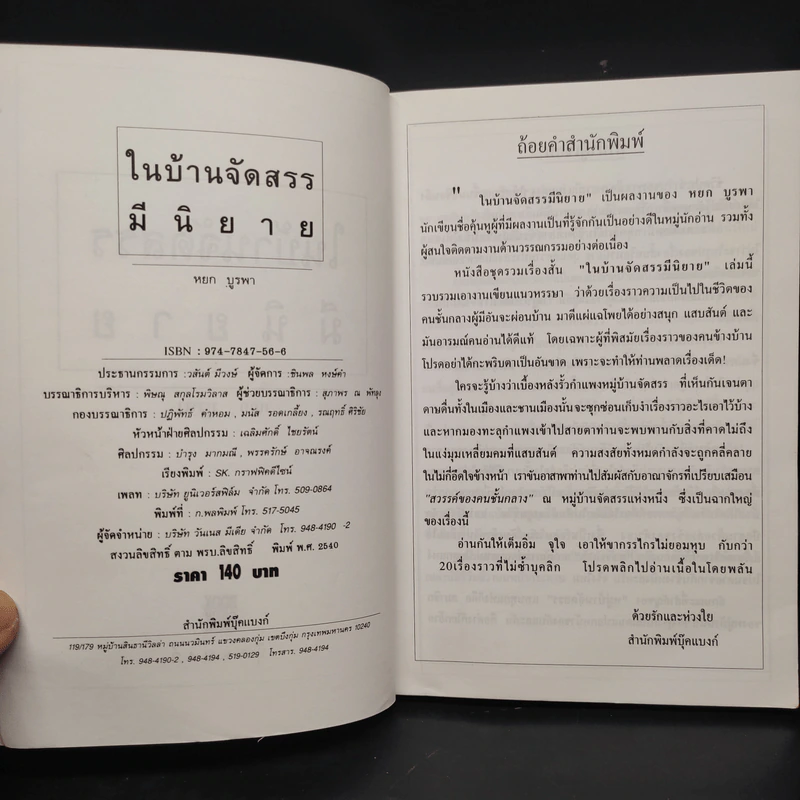 ในบ้านจัดสรร
มีนิยาย
หยก บูรพา
ISBN : 974-7847-56-6
ประธานกรรมการ : วสันต์ มีวงษ์ ผู้จัดการ : ชินพล หงษ์คำ
บรรณาธิการบริหาร : พิษณุ สกุลโรมวิลาส ผู้ช่วยบรรณาธิการ : สุภาพร ณ พัทลุง
กองบรรณาธิการ : ปฏิพัทธ์ คำหอม , มนัส รอดเกลี้ยง , รณฤทธิ์ ศิริชัย
หัวหน้าฝ่ายศิลปกรรม : เฉลิมศักดิ์ ไชยรัตน์
ศิลปกรรม : บำรุง มากมณี , พรรครักษ์ อาจณรงค์
เรียงพิมพ์ : SK. กราฟฟิคดีไซน์
เพลท : บริษัท ยูนิเวอร์สฟิล์ม จำกัด โทร. 509-0864
พิมพ์ที่ : ก.พลพิมพ์ โทร. 517-5045
ผู้จัดจำหน่าย : บริษัท วันเนส มีเดีย จำกัด โทร. 948-4190 -2
สงวนลิขสิทธิ์ ตาม พรบ.ลิขสิทธิ์ พิมพ์ พ.ศ. 2540
ราคา 140 บาท
สำนักพิมพ์บุ๊คแบงก์
119/179 หมู่บ้านสินธานีวิลล่า ถนนนวมินทร์ แขวงคลองกุ่ม เขตบึงกุ่ม กรุงเทพมหานคร 10240
โทร. 948-4190-2 , 948-4194 , 519-0129 โทรสาร. 948-4194
ถ้อยคำสำนักพิมพ์
" ในบ้านจัดสรรมีนิยาย" เป็นผลงานของ หยก บูรพา
นักเขียนชื่อคุ้นหูผู้ที่มีผลงานเป็นที่รู้จักกันเป็นอย่างดีในหมู่นักอ่าน รวมทั้ง
ผู้สนใจติดตามงานด้านวรรณกรรมอย่างต่อเนื่อง
หนังสือชุดรวมเรื่องสั้น "ในบ้านจัดสรรมีนิยาย" เล่มนี้
รวบรวมเอางานเขียนแนวหรรษา ว่าด้วยเรื่องราวความเป็นไปในชีวิตของ
คนชั้นกลางผู้มีอันจะผ่อนบ้าน มาตีแผ่แฉโพยได้อย่างสนุก แสบสันต์ และ
มันอารมณ์คนอ่านได้ดีแท้ โดยเฉพาะผู้ที่พิสมัยเรื่องราวของคนข้างบ้าน
โปรดอย่าได้กะพริบตาเป็นอันขาด เพราะจะทำให้ท่านพลาดเรื่องเด็ด!
ใครจะรู้บ้างว่าเบื้องหลังรั้วกำแพงหมู่บ้านจัดสรร ที่เห็นกันเจนตา
ดาษดื่นทั้งในเมืองและชานเมืองนั้นจะซุกซ่อนเก็บงำเรื่องราวอะไรเอาไว้บ้าง
และหากมองทะลุกำแพงเข้าไปสายตาท่านจะพบพานกับสิ่งที่คาดไม่ถึง
ในแง่มุมเหลี่ยมคมที่แสบสันต์ ความสงสัยทั้งหมดกำลังจะถูกคลี่คลาย
ในไม่กี่อึดใจข้างหน้า เราขันอาสาพาท่านไปสัมผัสกับอาณาจักรที่เปรียบเสมือน
"สวรรค์ของคนชั้นกลาง" ณ หมู่บ้านจัดสรรแห่งหนึ่ง ซึ่งเป็นฉากใหญ่
ของเรื่องนี้
อ่านกันให้เต็มอิ่ม จุใจ เอาให้ขากรรไกรไม่ยอมหุบ กับกว่า
20เรื่องราวที่ไม่ซ้ำบุคลิก โปรดพลิกไปอ่านเนื้อในโดยพลัน
ด้วยรักและห่วงใย
สำนักพิมพ์บุ๊คแบงก์